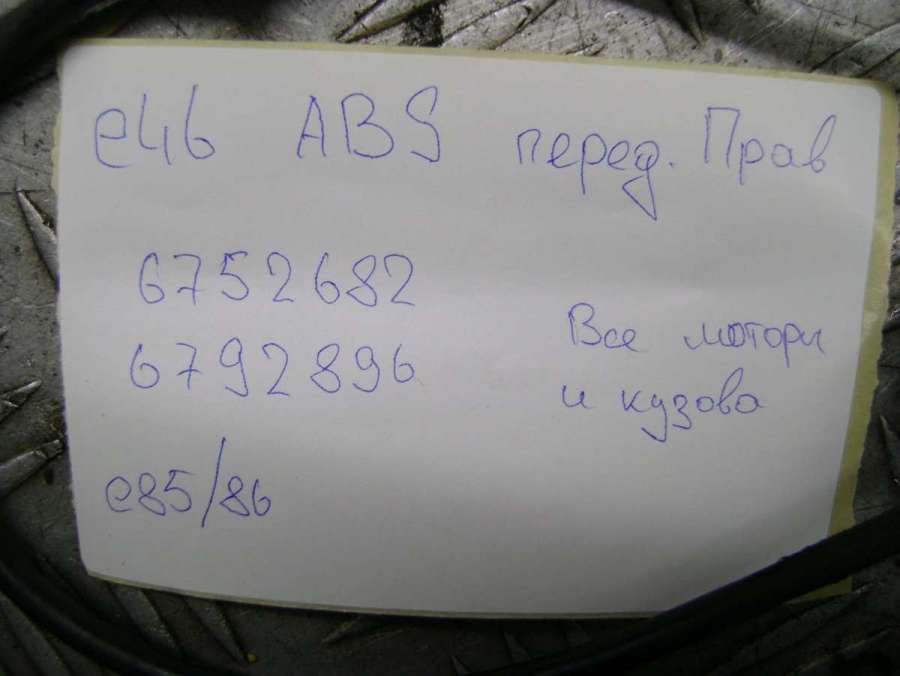 e46 ABS перед. Прав
6752682
6792896
Все моторы
и кузова
e85/86